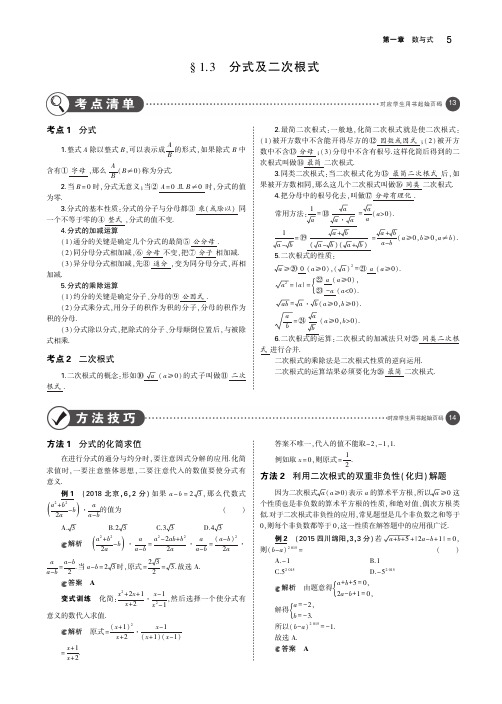 第一章 数与式 5
§1.3 分式及二次根式
考点清单 对应学生用书起始页码 13
考点1 分式
1.整式A除以整式B,可以表示成A/B的形式,如果除式B中
含有① 字母 ,那么A/B(B≠0)称为分式.
2.当B=0时,分式无意义;当② A=0且B≠0 时,分式的值
为零.
3.分式的基本性质:分式的分子与分母都③ 乘(或除以) 同
一个不等于零的④ 整式 ,分式的值不变.
4.分式的加减运算
(1)通分的关键是确定几个分式的最简⑤ 公分母 .
(2)同分母分式相加减,⑥ 分母 不变,把⑦ 分子 相加减.
(3)异分母分式相加减,先⑧ 通分 ,变为同分母分式,再相
加减.
5.分式的乘除运算
(1)约分的关键是确定分子、分母的⑨ 公因式 .
(2)分式乘分式,用分子的积作为积的分子,分母的积作为
积的分母.
(3)分式除以分式,把除式的分子、分母颠倒位置后,与被除
式相乘.
考点2 二次根式
1.二次根式的概念:形如⑩ √a (a≥0)的式子叫做⑪ 二次
根式 .
2.最简二次根式:一般地,化简二次根式就是使二次根式:
(1)被开方数中不含能开得尽方的⑫ 因数或因式 ;(2)被开方
数中不含⑬ 分母 ;(3)分母中不含有根号.这样化简后得到的二
次根式叫做⑭ 最简 二次根式.
3.同类二次根式:当二次根式化为⑮ 最简二次根式 后,如
果被开方数相同,那么这几个二次根式叫做⑯ 同类 二次根式.
4.把分母中的根号化去,叫做⑰ 分母有理化 .
常用方法:1/√a=⑱ √a/(√a·√a) =√a/a(a>0).
1/(√a-√b)=⑲ (√a+√b)/((√a-√b)(√a+√b)) =(√a+√b)/(a-b)(a≥0,b≥0,a≠b).
5.二次根式的性质:
√a≥⑳ 0 (a≥0),(√a)²=㉑ a (a≥0).
√a²=|a|={㉒ a (a≥0), ㉓ -a (a<0).
√ab=√a·√b(a≥0,b≥0).
√(a/b)=㉔ √a/√b (a≥0,b>0).
6.二次根式的运算:二次根式的加减法只对㉕ 同类二次根
式 进行合并.
二次根式的乘除法是二次根式性质的逆向运用.
二次根式的运算结果必须要化为㉖ 最简 二次根式.
方法技巧 对应学生用书起始页码 14
方法1 分式的化简求值
在进行分式的通分与约分时,要注意因式分解的应用.化简
求值时,一要注意整体思想,二要注意代入的数值要使分式有
意义.
例1 (2018北京,6,2分)如果a-b=2√3,那么代数式
((a²+b²)/2a-b)·a/(a-b)的值为 ( )
A.√3 B.2√3 C.3√3 D.4√3
解析 ((a²+b²)/2a-b)·a/(a-b)=(a²-2ab+b²)/2a·a/(a-b)=(a-b)²/2a·
a/(a-b)=(a-b)/2.当a-b=2√3时,原式=2√3/2=√3.故选A.
答案 A
变式训练 化简:(x²+2x+1)/(x+2)·(x-1)/(x²-1),然后选择一个使分式有
意义的数代入求值.
解析 原式=(x+1)²/(x+2)·(x-1)/((x+1)(x-1))
=(x+1)/(x+2).
答案不唯一,代入的值不能取-2,-1,1.
例如取x=0,则原式=1/2.
方法2 利用二次根式的双重非负性(化归)解题
因为二次根式√a(a≥0)表示a的算术平方根,所以√a≥0这
个性质也是非负数的算术平方根的性质,和绝对值、偶次方根类
似.对于二次根式非负性的应用,常见题型是几个非负数之和等于
0,则每个非负数都等于0,这一性质在解答题中的应用很广泛.
例2 (2015四川绵阳,3,3分)若√(a+b+5)+|2a-b+1|=0,
则(b-a)²⁰¹⁵= ( )
A.-1 B.1
C.5²⁰¹⁵ D.-5²⁰¹⁵
解析 由题意得{a+b+5=0, 2a-b+1=0,
解得{a=-2, b=-3.
所以(b-a)²⁰¹⁵=-1.
故选A.
答案 A